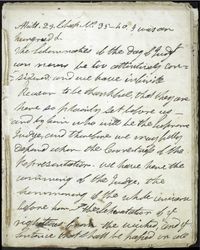 Matt. 25 Chap. Vs. 35-40. I was an
hungred &
The Solemnities of the Day of Judgt
can never be too attentively con-
sidered and we have infinite
Reason to be thankful that they are
here so plainly set before us -
and by him who will be the supreme
Judge, and therefore we may safely
depend upon the Correctness of the
Representation. we have here the
coming of the Judge, the
summoning of the whole universe
before him - The Separation of ye
righteous from the wicked, and ye
sentence that shall be passed on all